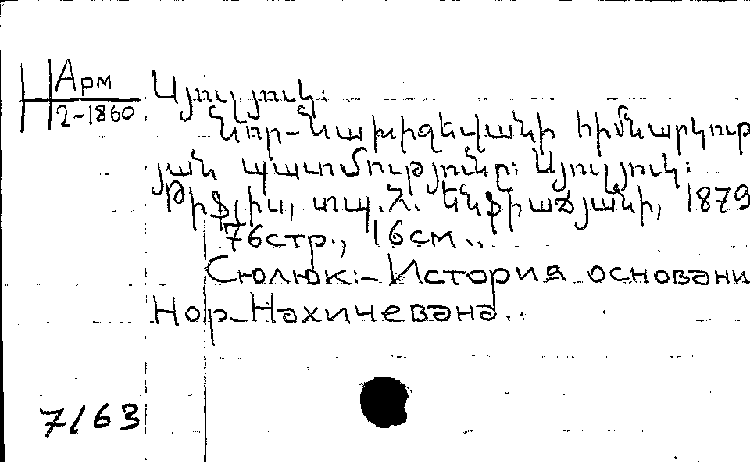 Н Арм
2-1860
Սյուլյուկ:
Նոր-Նախիջեվանի հիմնարկութ
յան պատմությունը: Սյուլյուկ:
Թիֆլիս, տպ. Հ. Ենֆիաճյանի, 1879
76стр., 16см..
Сюлюк.- История основани
Нор-Нахичевана..
7/63